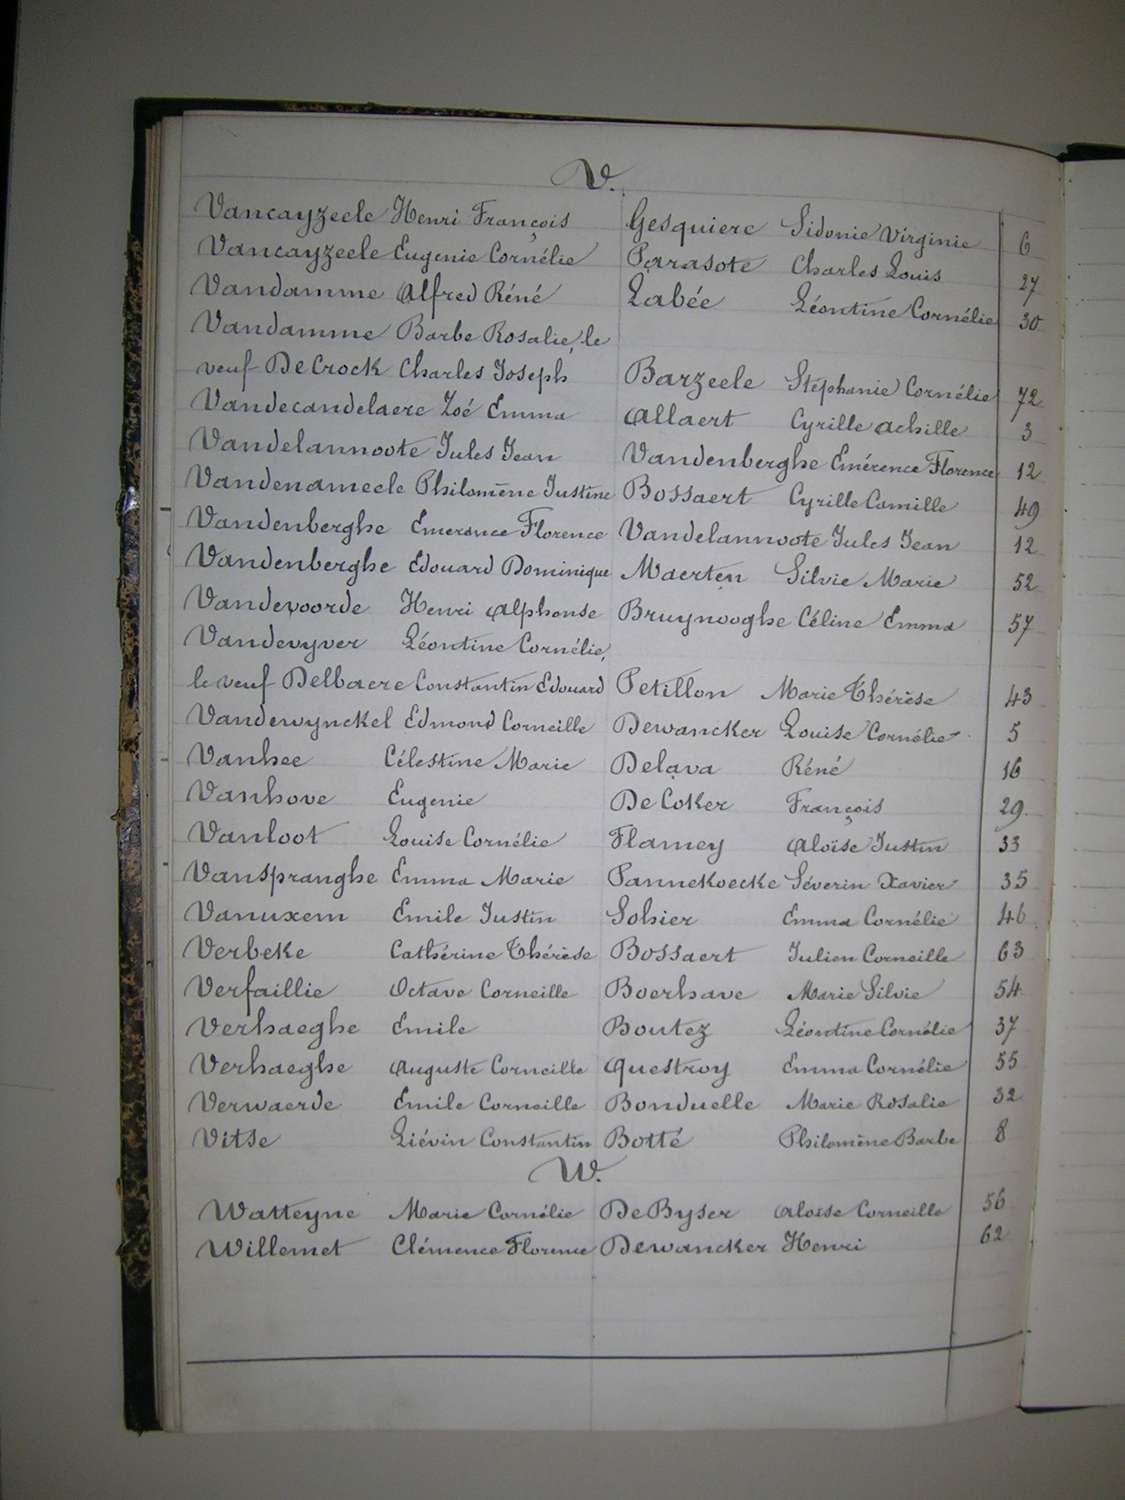 V.
Vancayzeele Henri François Gesquiere Sidonie Virginie 6
Vancayzeele Eugenie Cornélie Parasote Charles Louis 27
Vandamme Alfred Réné Labée Léontine Cornélie 30
Vandamme Barbe Rosalie, le
veuf DeCrock Charles Joseph Barzeele Stéphanie Cornélie 72
Vandecandelaere Zoé Emma Allaert Cyrille Achille 3
Vandelannoote Jules Jean Vandenberghe Emérence Florence 12
Vandenameele Philomène Justine Bossaert Cyrille Camille 49
Vandenberghe Emerance Florence Vandelannoote Jules Jean 12
Vandenberghe Edouard Dominique Maerten Silvie Marie 52
Vandevoorde Henri Alphonse Bruynooghe Céline Emma 57
Vandevyver Léontine Cornélie,
le veuf Delbaere Constantin Edouard Petillon Marie Thérèse 43
Vandewynckel Edmond Corneille Dewancker Louise Cornélie 5
Vanhee Célestine Marie Delava Réné 16
Vanhove Eugenie DeCoker François 29
Vanloot Louise Cornélie Flamey Aloïse Justin 33
Vanspranghe Emma Marie Pannekoecke Séverin Xavier 35
Vanuxem Emile Justin Sohier Emma Cornélie 46
Verbeke Cathérine Thérèse Bossaert Julien Corneille 63
Verfaillie Octave Corneille Boerhave Marie Silvie 54
Verhaeghe Emile Boutez Léontine Cornélie 37
Verhaeghe Auguste Corneille Questroy Emma Cornélie 55
Verwaerde Emile Corneille Bonduelle Marie Rosalie 32
Vitse Liévin Constantin Botté Philomène Barbe 8
W.
Watteyne Marie Cornélie DeByser Aloïse Corneille 56
Willemet Clémence Florence Dewancker Henri 62